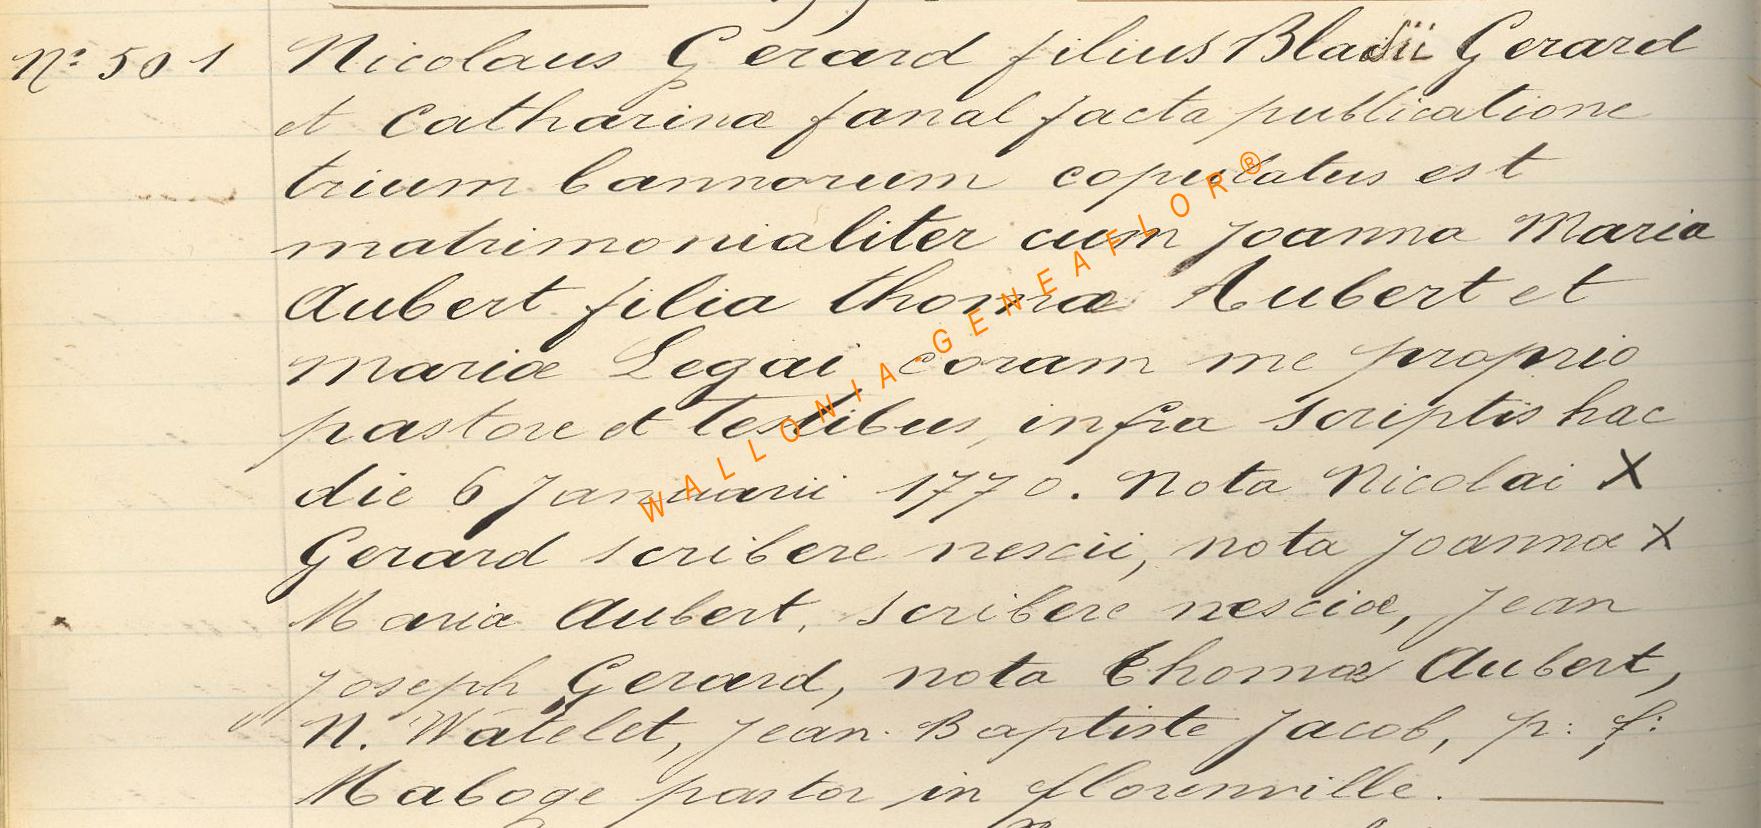 Nº 501 Nicolaus Gerard filius Blasii Gerard
et Catharinæ fanal facta publicatione
trium bannorum copulatus est
matrimonialiter cum Joanna Maria
Aubert filia thomæ Aubert et
mariæ Legai coram me proprio
pastore et testibus infra scriptis hac
die 6 Januarii 1770. Nota Nicolai X
Gerard scribere nescii, nota Joannæ X
Maria Aubert, scribere nesciæ, Jean
Joseph Gerard, nota thomæ Aubert,
N. Watelet, Jean Baptiste Jacob, p: f:
Maboge pastor in florenville.
WALLONIA-GENEAFLOR®